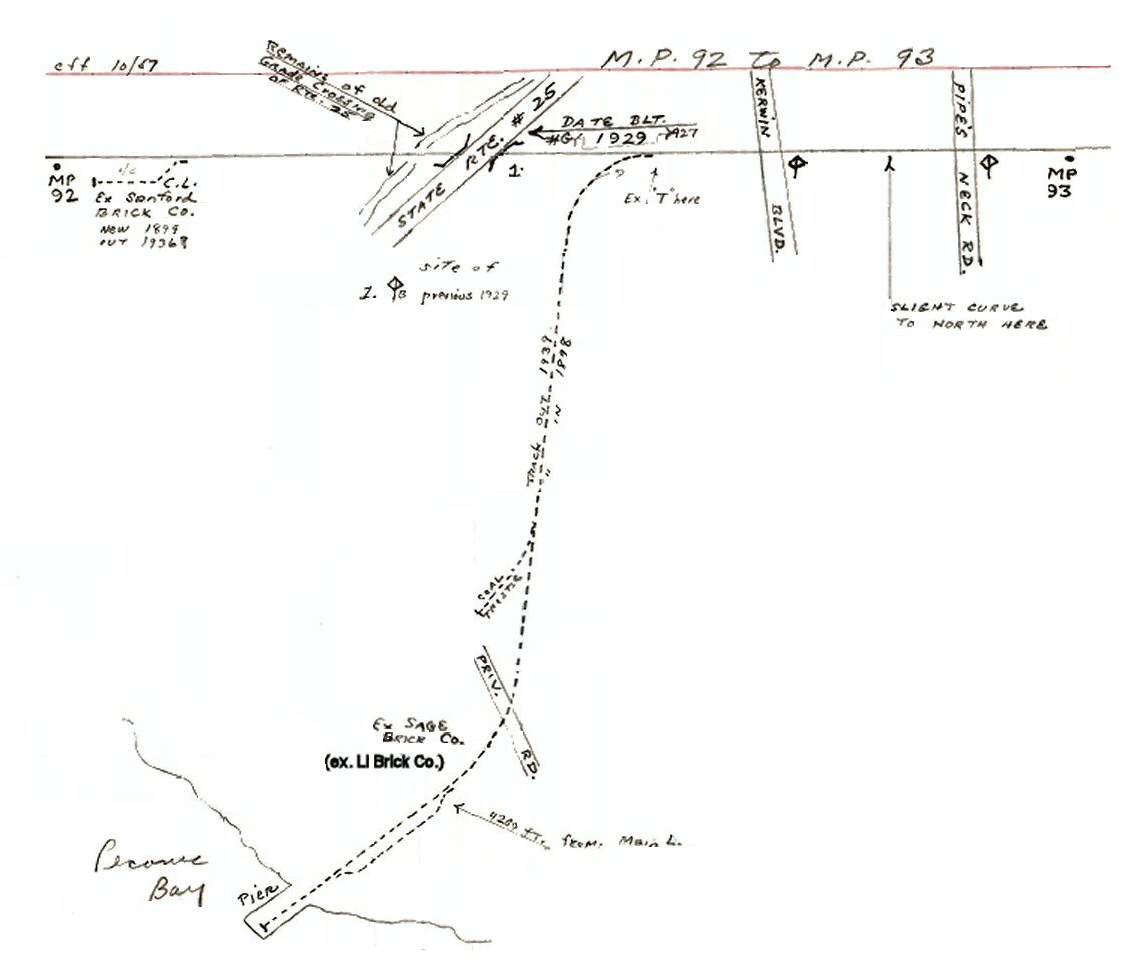 eff 10/57
M.P. 92 To M.P. 93
REMAINS of old
GRADE CROSSING
OF RTE. 25
STATE RTE. # 25
DATE BLT.
1929
1927
KERWIN BLVD.
PIPE'S NECK RD.
MP
92
C.L.
Ex Sanford
BRICK Co.
NEW 1899
OUT 1936?
1.
Ex. "T" here
MP
93
site of
1. B previous 1929
SLIGHT CURVE
TO NORTH HERE
TRACK OUT 1939
" IN 1898
COAL
TRESTLE
PRIV. RD.
Ex SAGE
BRICK Co.
(ex. LI Brick Co.)
4200 FT. from. Main L.
Peconic
Bay
PIER